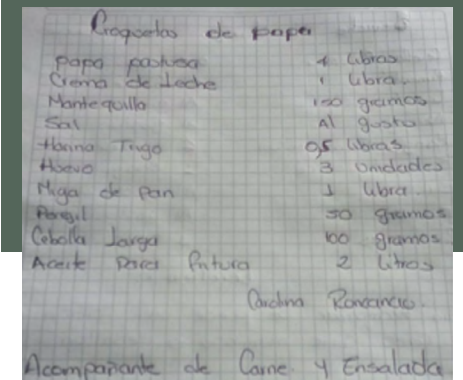 Croquetas de papa
Papa pastusa 4 libras
Crema de Leche 1 libra
Mantequilla 150 gramos
Sal Al gusto
Harina Trigo 0,5 libras
Huevo 3 Unidades
Miga de Pan 1 libra
Peregil 50 gramos
Cebolla Larga 100 gramos
Aceite Para Fritura 2 Litros
Carolina Roncancio.
Acompañante de Carne y Ensalada